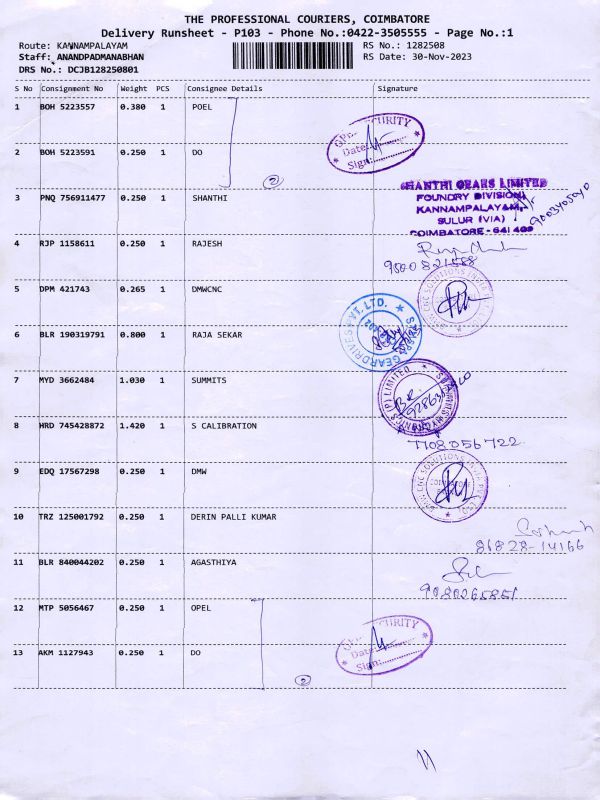 THE PROFESSIONAL COURIERS, COIMBATORE
Delivery Runsheet - P103 - Phone No.:0422-3505555 - Page No.:1
Route: KANNAMPALAYAM RS No.: 1282508
Staff: ANANDPADMANABHAN RS Date: 30-Nov-2023
DRS No.: DCJB128250801
S No Consignment No Weight PCS Consignee Details Signature
1 BOH 5223557 0.380 1 POEL
SECURITY
Date:
Sign:
2 BOH 5223591 0.250 1 DO
2
SHANTHI GEARS LIMITED
3 PNQ 756911477 0.250 1 SHANTHI
FOUNDRY DIVISION
KANNAMPALAYAM,
SULUR (VIA)
COIMBATORE - 641 402
4 RJP 1158611 0.250 1 RAJESH
5 DPM 421743 0.265 1 DMWCNC
6 BLR 190319791 0.800 1 RAJA SEKAR
7 MYD 3662484 1.030 1 SUMMITS
8 HRD 745428872 1.420 1 S CALIBRATION
7708056722
9 EDQ 17567298 0.250 1 DMW
10 TRZ 125001792 0.250 1 DERIN PALLI KUMAR
86828-14166
11 BLR 840044202 0.250 1 AGASTHIYA
9080265851
12 MTP 5056467 0.250 1 OPEL
SECURITY
Date:
Sign:
13 AKM 1127943 0.250 1 DO
2
11